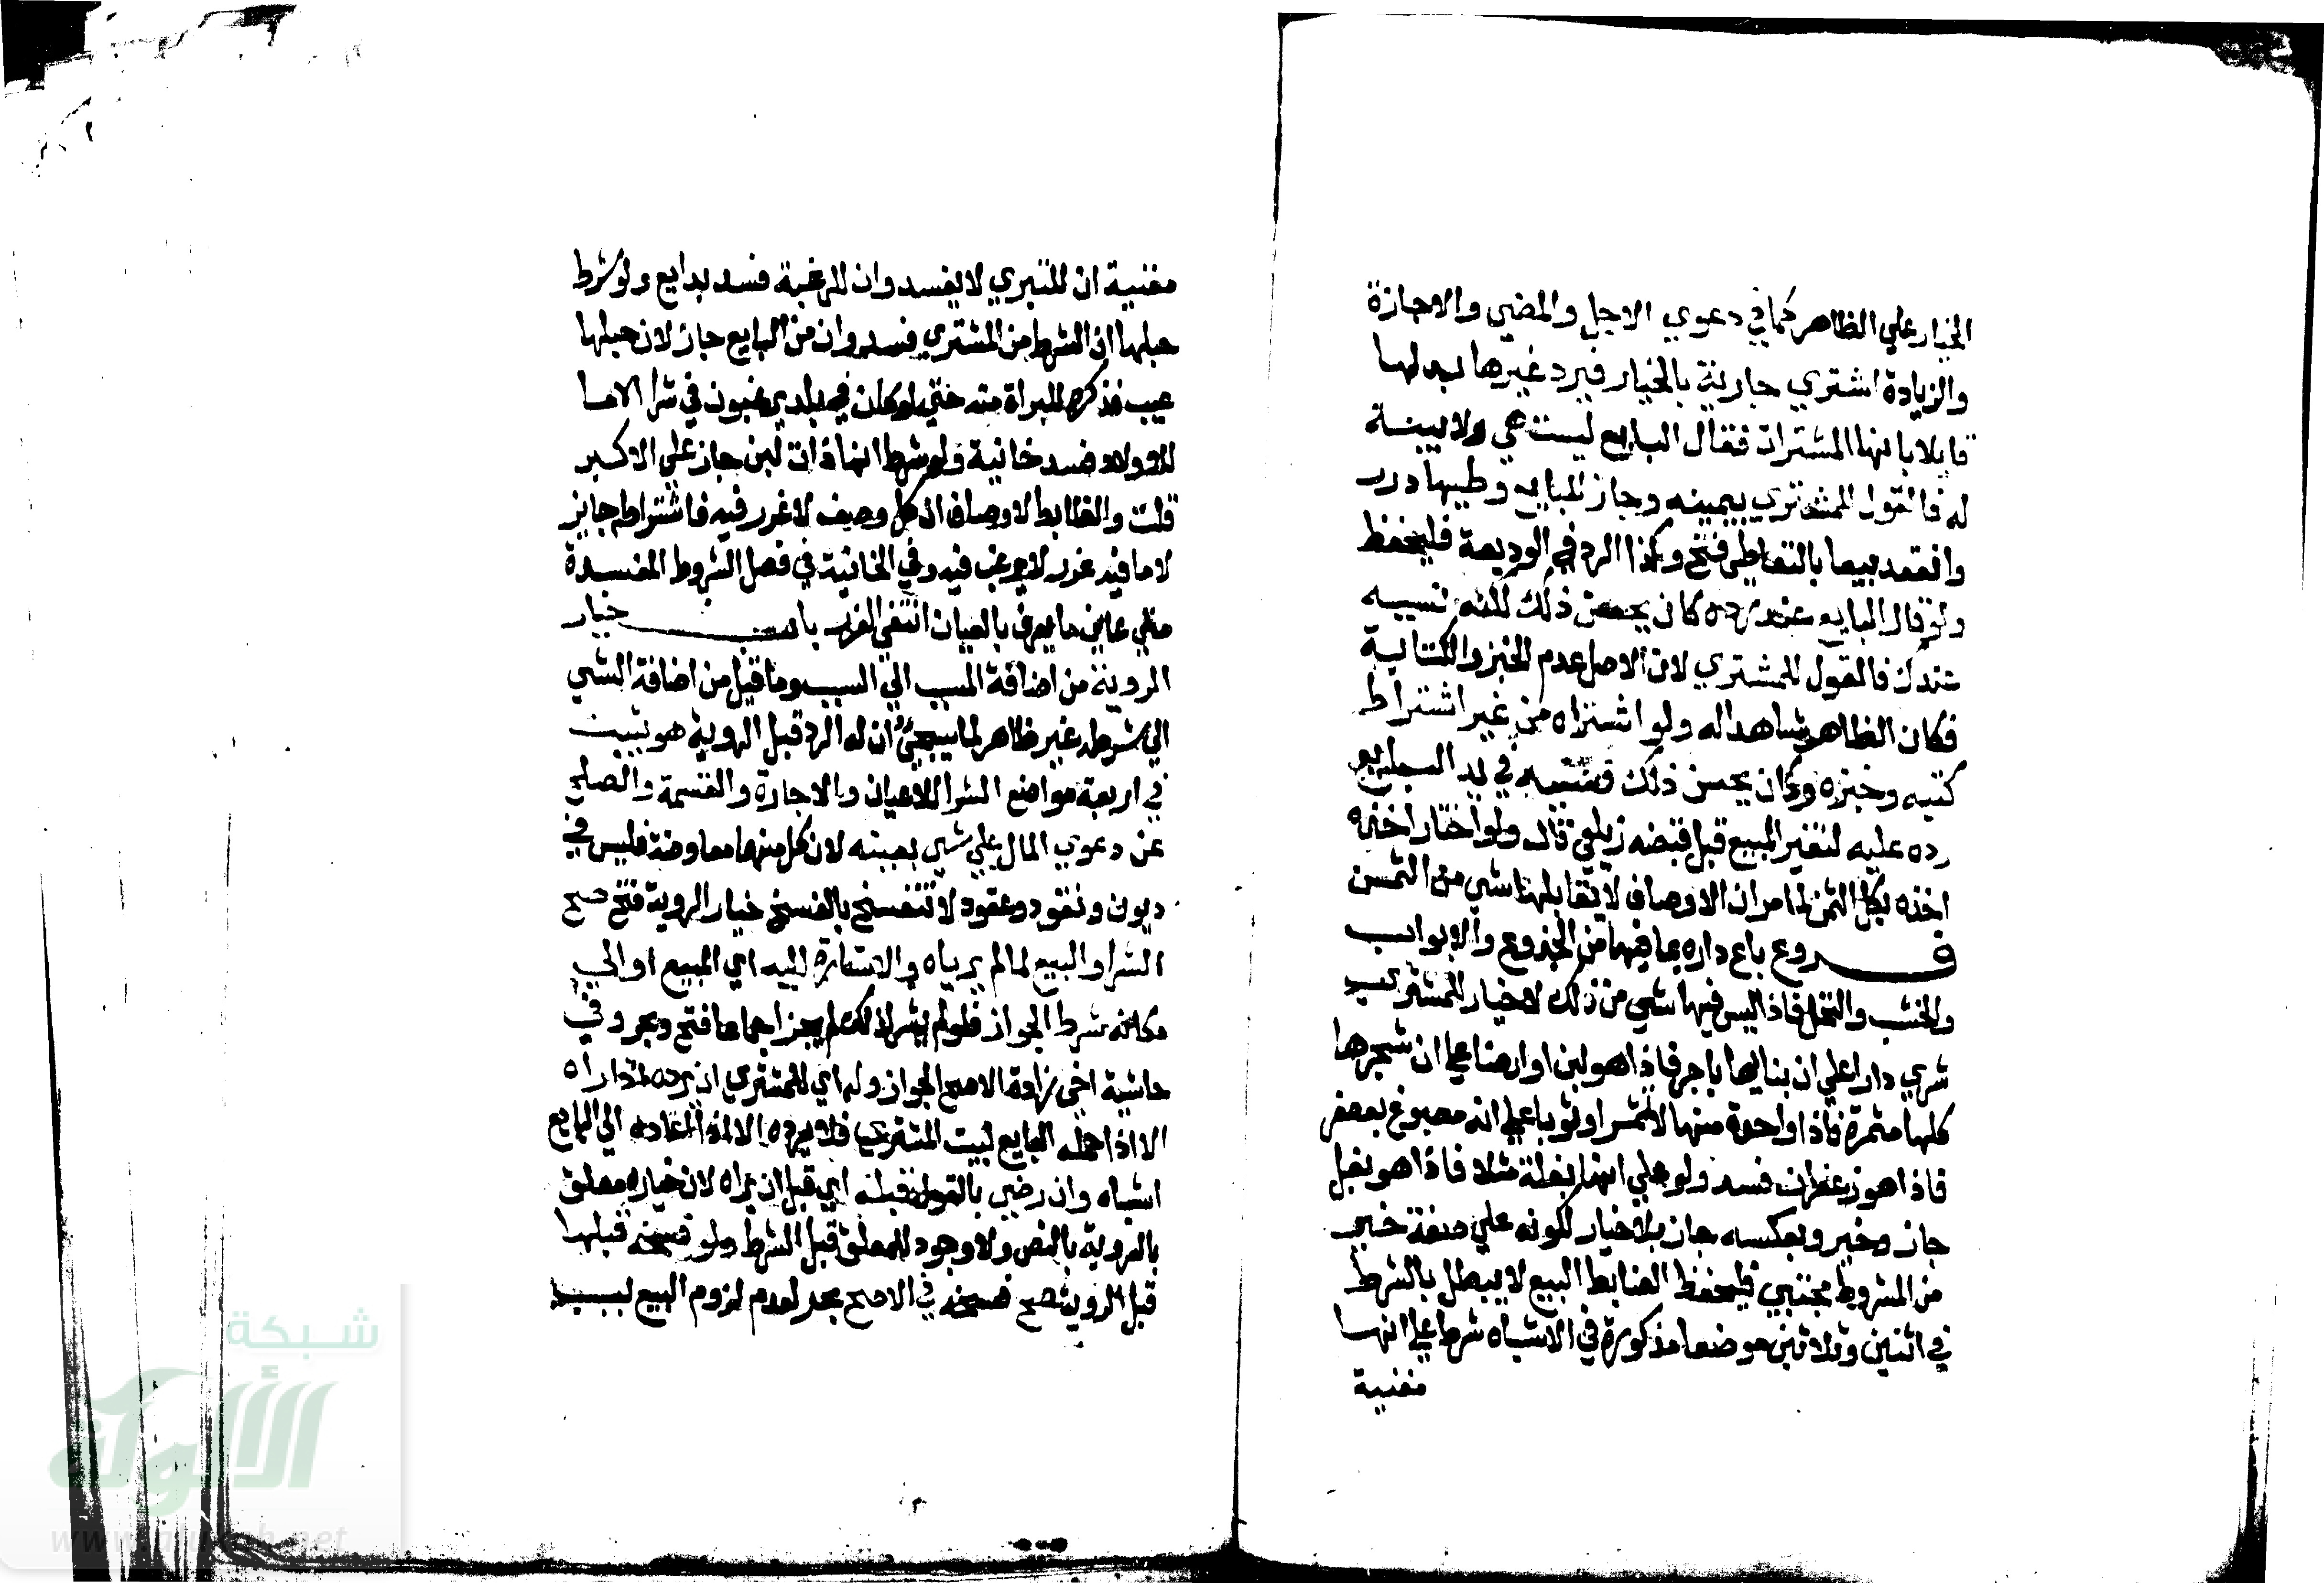 الخيار علي الظاهر كما في دعوي الاجل والمضي والاجازة
والزيادة اشتري جارية بالخيار فرد غيرها بدلها
قايلا بانها المشترات فقال البايع ليست هي ولا بينة
له فالقول للمشتري بيمينه وجاز للبايع وطيها درر
وانعقد بيعا بالتعاطي فتح وكذا الرد في الوديعة فليحفظ
ولو قال البايع عند رده كان يحسن ذلك لكنه نسيه
عندك فالقول للمشتري لان الاصل عدم الخبز والكتابة
فكان الظاهر شاهدا له ولو اشتراه من غير اشتراط
كتبه وخبزه وكان يحسن ذلك فنسيه في يد البايع
رده عليه لتغير المبيع قبل قبضه زيلعي قال ولو اختار اخذه
اخذه بكل الثمن لما مر ان الاوصاف لا يقابلها شي من الثمن
فروع باع داره بما فيها من الجذوع والابواب
والخشب والنخل فاذا ليس فيها شي من ذلك لا خيار للمشتري
شري دارا علي ان بناها باجر فاذا هو لبن او ارضا علي ان شجرها
كلها مثمرة فاذا واحدة منها لا تثمر او ثوبا علي انه مصبوغ بعصفر
فاذا هو زعفران فسد ولو علي انها بغلة مثلا فاذا هو بغل
جاز وخير وبعكسه جاز بلا خيار لكونه علي صفة خير
من المشروط مجتبي فليحفظ الضابط البيع لا يبطل بالشرط
في اثنين وثلاثين موضعا مذكورة في الاشباه شرط علي انها
مغنية
مغنية ان للتبري لا يفسد وان للرغبة فسد بدايع ولو شرط
حبلها ان الشرط من المشتري فسد وان من البايع جاز لان حبلها
عيب فذكره للبراة منه حتي لو كان في بلد يرغبون في شرا الاما
للاولاد فسد خانية ولو شرط انها ذات لبن جاز علي الاكبر
قلت والضابط للاوصاف ان كل وصف لا غرر فيه فاشتراطه جايز
لا ما فيه غرر الا ان يرغب فيه وفي الخانية في فصل الشروط المفسدة
متي عاين ما يعرف بالعيان انتفي الغرر باب خيار
الروية من اضافة المسبب الي السبب وما قيل من اضافة الشي
الي شرطه غير ظاهر لما سيجئ ان له الرد قبل الروية هو يثبت
في اربعة مواضع الشرا للاعيان والاجارة والقسمة والصلح
عن دعوي المال علي شي بعينه لان كل منها معاوضة فليس في
ديون ونقود وعقود لا تنفسخ بالفسخ خيار الروية فتح صح
الشرا والبيع لما لم يرياه والاشارة اليه اي المبيع او الي
مكانه شرط الجواز فلو لم يشر لذلك لم يجز اجماعا فتح وبحر وفي
حاشية اخي زادة الاصح الجواز وله اي للمشتري ان يرده اذا راه
الا اذا حمله البايع لبيت المشتري فلا يرده الا اذا اعاده الي البايع
اشباه وان رضي بالقول قبله اي قبل ان يراه لان خياره معلق
بالروية بالنص ولا وجود للمعلق قبل الشرط ولو فسخه قبلها
قبل الروية صح فسخه في الاصح بحر لعدم لزوم البيع لسبب
شبكة
الألوكة